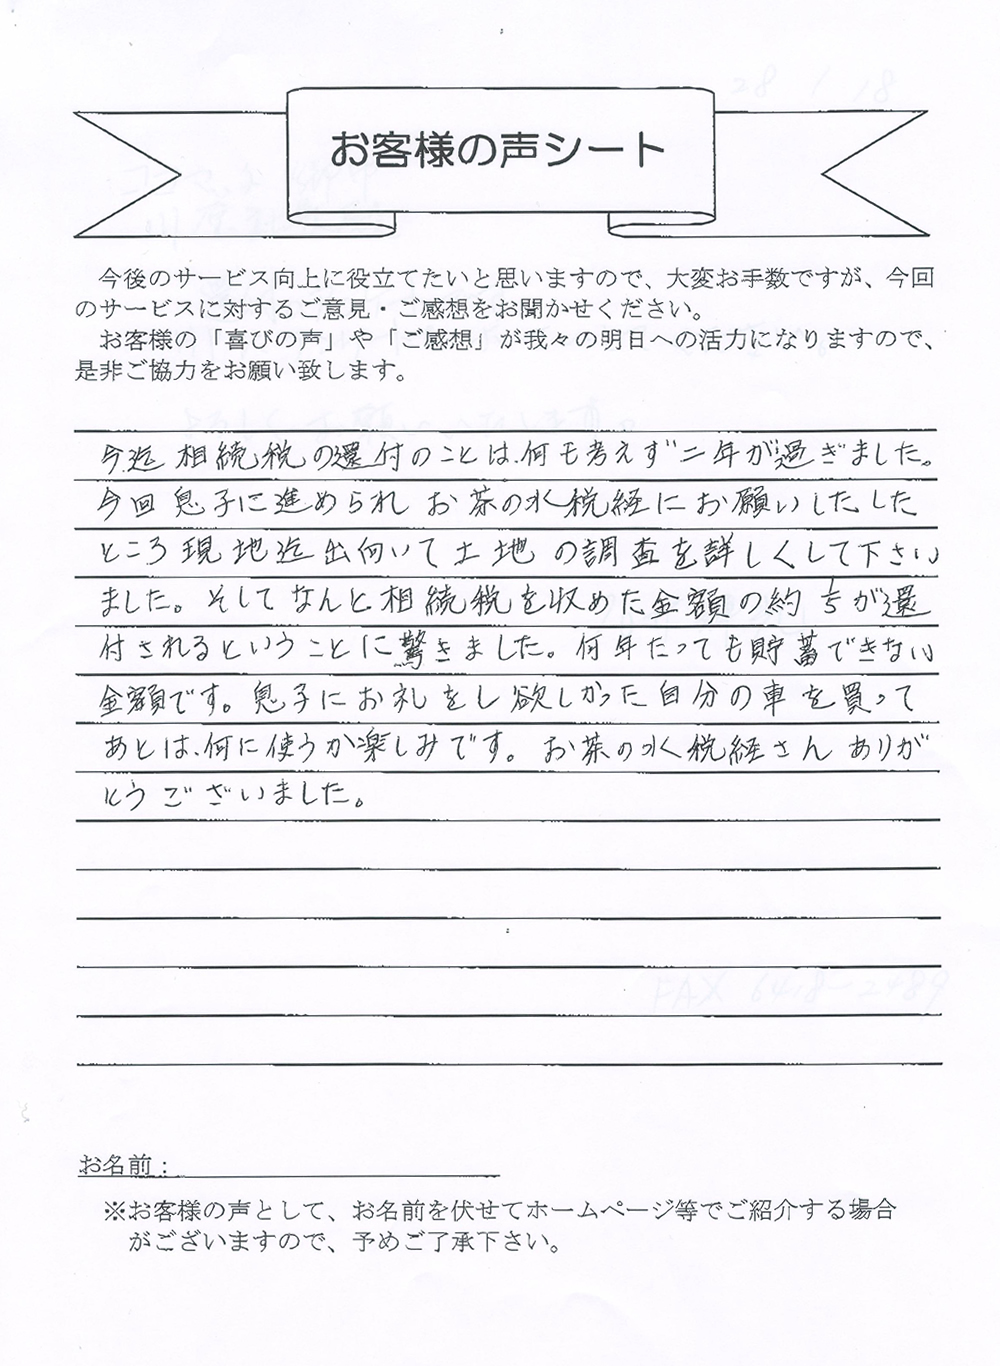 28 1 18
お客様の声シート
今後のサービス向上に役立てたいと思いますので、大変お手数ですが、今回
のサービスに対するご意見・ご感想をお聞かせください。
お客様の「喜びの声」や「ご感想」が我々の明日への活力になりますので、
是非ご協力をお願い致します。
今迄 相続税の還付のことは、何も考えず二年が過ぎました。
今回息子に進められ お茶の水税経にお願いしたした
ところ現地迄出向いて土地の調査を詳しくして下さい
ました。そしてなんと相続税を収めた金額の約 1/5が還
付されるということに驚きました。何年たっても貯蓄できない
金額です。息子にお礼をし欲しかった自分の車を買って
あとは、何に使うか楽しみです。お茶の水税経さん ありが
とうございました。
FAX 6418-2489
お名前：
※お客様の声として、お名前を伏せてホームページ等でご紹介する場合
がございますので、予めご了承下さい。